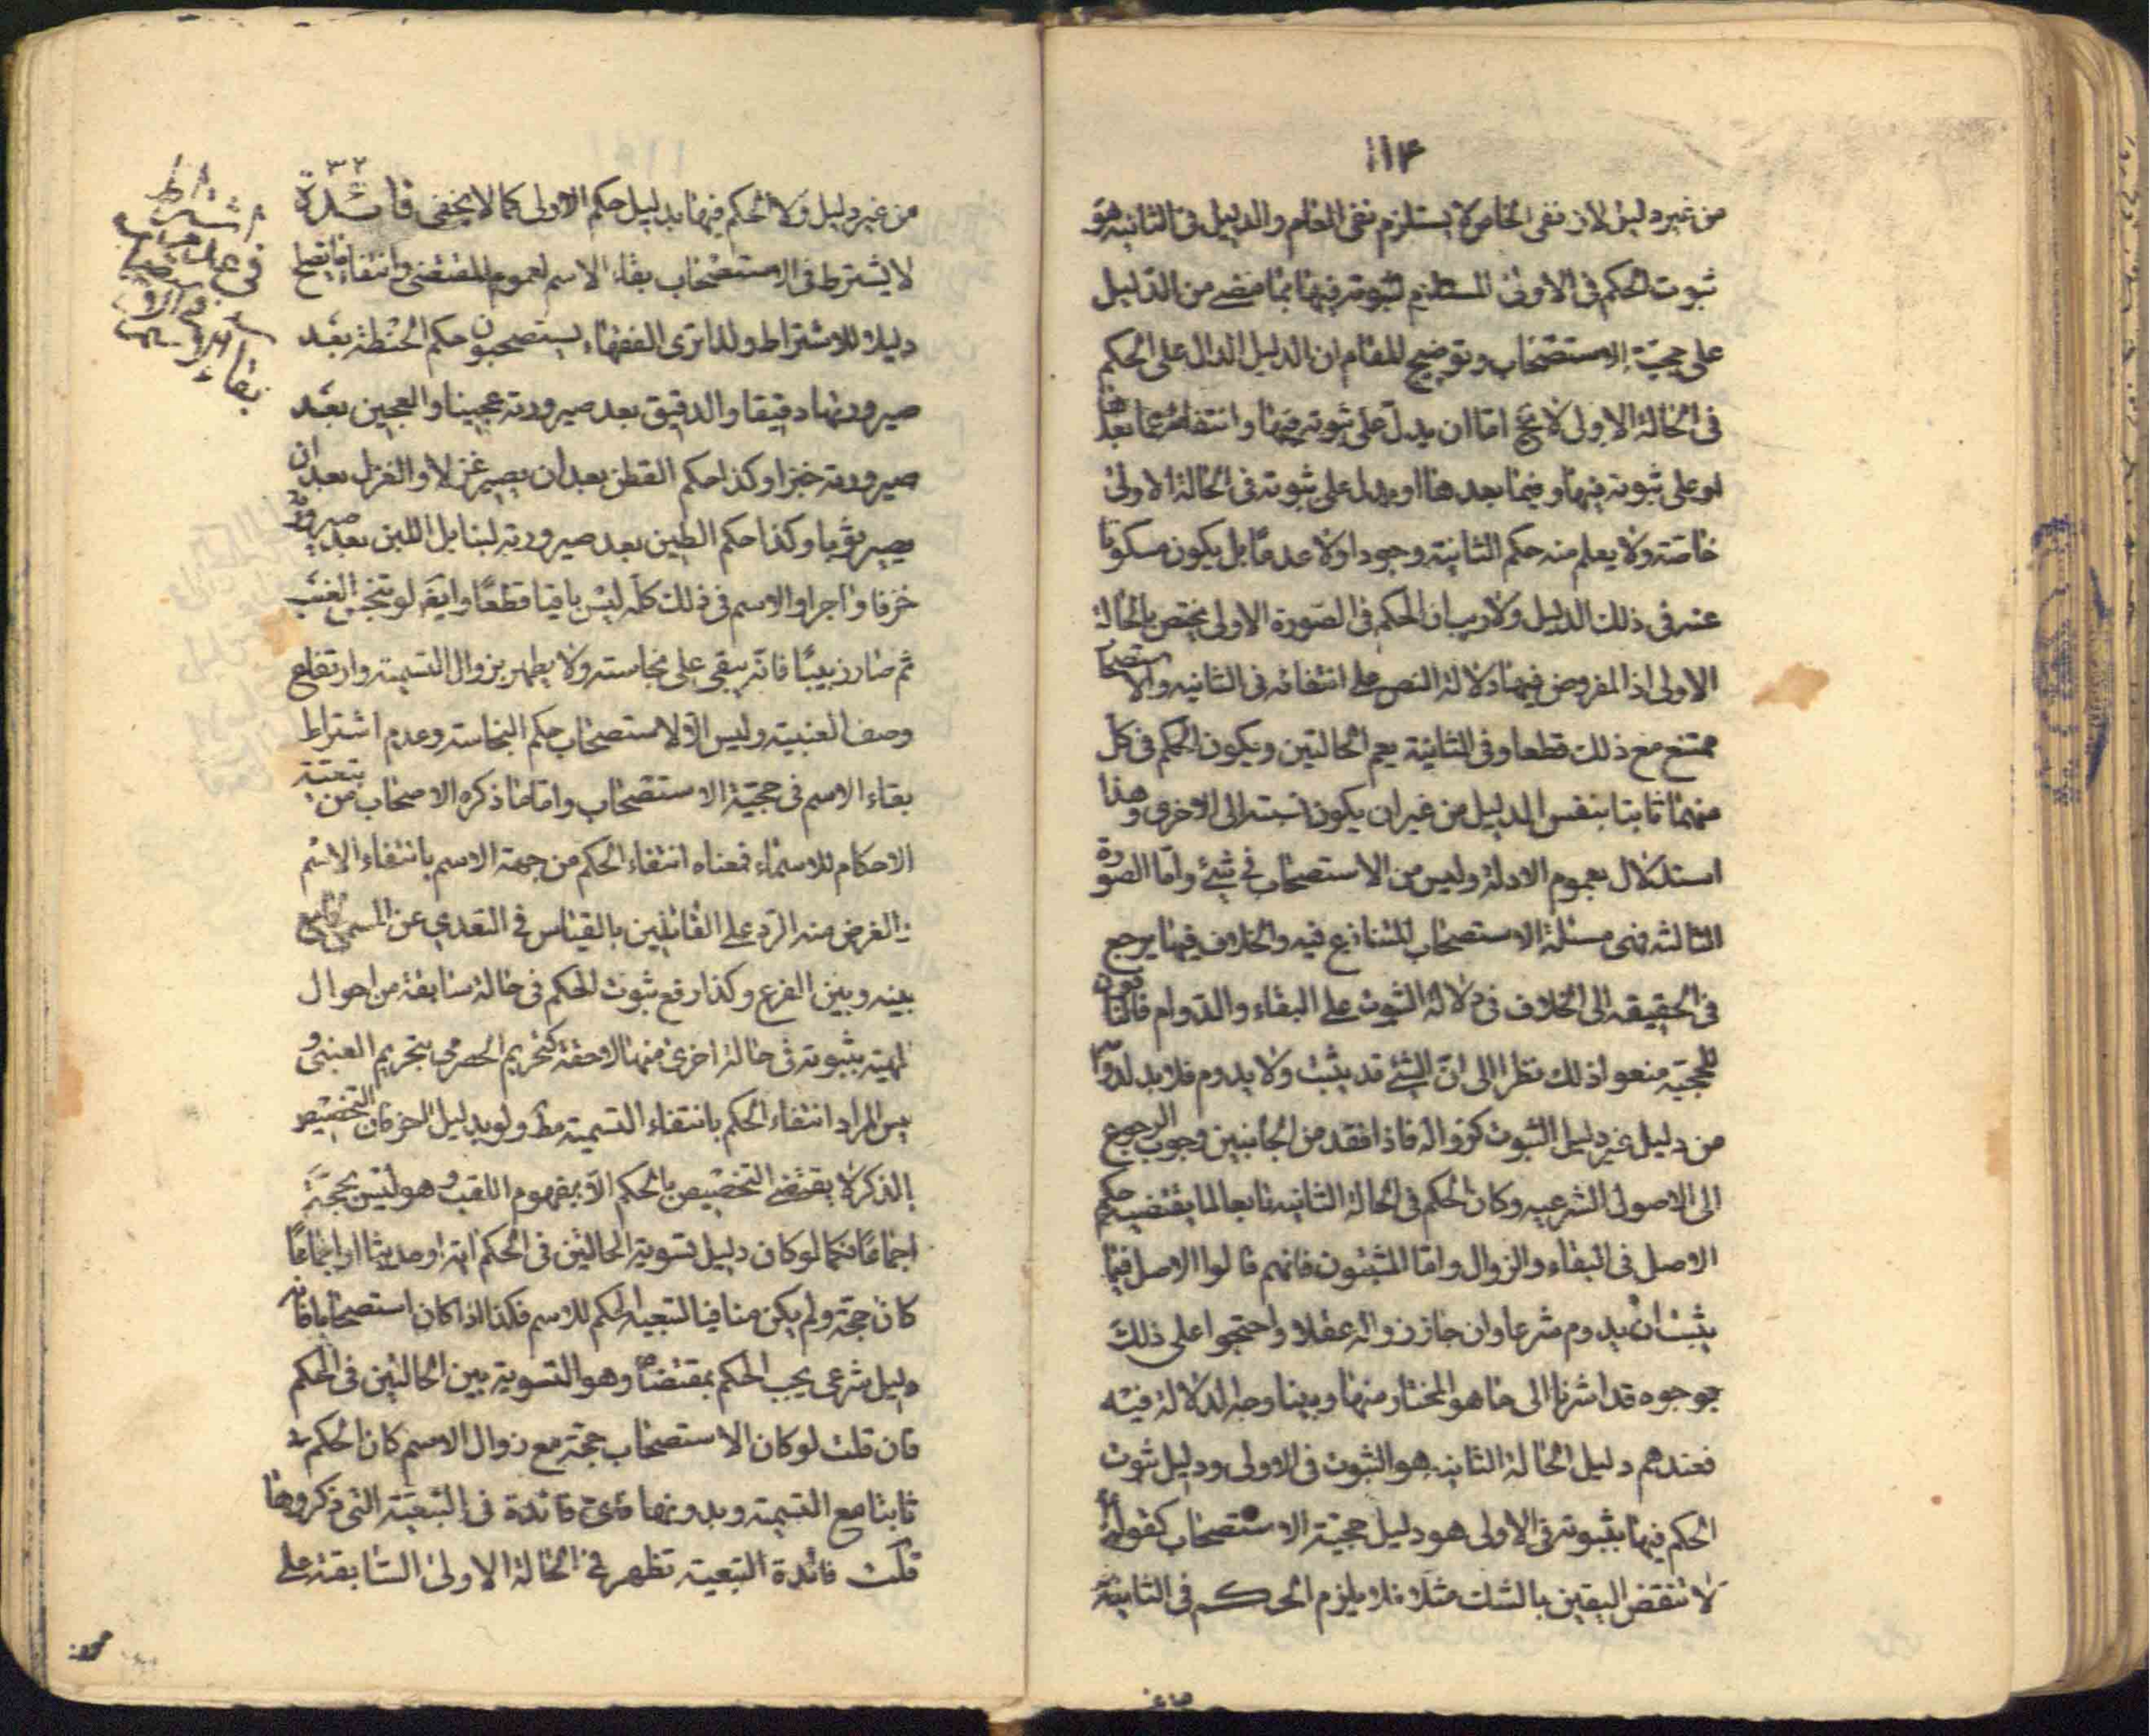 ١١٤
من غير دليل لان نفى الخاص لا يستلزم نفى العام والدليل فى الثانيه هو
ثبوت الحكم فى الاولى المستلزم لثبوته فيها بما مضى من الدليل
على حجيّة الاستصحاب وتوضيح المقام ان الدليل الدال على الحكم
فى الحالة الاولى لا يخ امّا ان يدلّ على ثبوته فيها وانتفائه عما بعدها
او على ثبوته فيها وفيما بعدها او يدل على ثبوته فى الحالة الاولى
خاصّة ولا يعلم منه حكم الثانية وجودا ولا عدمًا بل يكون مسكوتا
عنه فى ذلك الدليل ولا ريب ان الحكم فى الصّورة الاولى يختص بالحالة
الاولى اذ المفروض فيها دلالة النص على انتفائه فى الثانيه والاستصحاب
ممتنع مع ذلك قطعا وفى الثانية يعم الحالتين ويكون الحكم فى كل
منهما ثابتا بنفس الدليل من غير ان يكون نسبته الى الاخرى وهذا
استدلال بعموم الادلة وليس من الاستصحاب فى شئ وامّا الصورة
الثالثة فهى مسئلة الاستصحاب المتنازع فيه والخلاف فيها يرجع
فى الحقيقه الى الخلاف فى دلالة الثبوت على البقاء والدوام فالنافون
للحجيّة منعوا ذلك نظرا الى انّ الشئ قد يثبت ولا يدوم فلا بد لدوامه
من دليل غير دليل الثبوت كزواله فاذا فقد من الجانبين وجوب الرجوع
الى الاصول الشرعيه وكان الحكم فى الحالة الثانيه تابعا لما يقتضيه حكم
الاصل فى البقاء والزوال وامّا المثبتون فانهم قالوا الاصل فيما
يثبت ان يدوم شرعا وان جاز زواله عقلا واحتجوا على ذلك
بوجوه قد اشرنا الى ما هو المختار منها وبينا وجه الدلالة فيه
فعندهم دليل الحالة الثانيه هو الثبوت فى الاولى ودليل ثبوت
الحكم فيها بثبوته فى الاولى هو دليل حجية الاستصحاب كقوله ع
لا تنقض اليقين بالشك مثلا فلا يلزم الحكم فى الثانية
٣٢
من غير دليل ولا الحكم فيها بدليل حكم الاولى كما لا يخفى فائدة
لا يشترط فى الاستصحاب بقاء الاسم لعموم المقتضى وانتفاء ما يصلح
دليلا للاشتراط ولذا ترى الفقهاء يستصحبون حكم الحنطة بعد
صيرورتها دقيقا والدقيق بعد صيرورته عجينا والعجين بعد
صيرورته خبزا وكذا حكم القطن بعد ان يصير غزلا والغزل بعد ان
يصير ثوبا وكذا حكم الطين بعد صيرورته لبنا بل اللبن بعد صيرورته
خزفا واجرا والاسم فى ذلك كله ليس باقيا قطعًا وايضَ لو تنجس العنب
ثم صار زبيبًا فانّه يبقى على نجاسته ولا يطهر بزوال التسمية وارتفاع
وصف العنبية وليس الّا لاستصحاب حكم النجاسة وعدم اشتراط
بقاء الاسم فى حجيّة الاستصحاب وامّا ما ذكره الاصحاب من تبعيّة
الاحكام للاسماء فمعناه انتفاء الحكم من جهة الاسم بانتفاء الاسم
والغرض منه الرّد على القائلين بالقياس فى التعدي عن المسمى لجامع
بينه وبين الفرع وكذا رفع ثبوت الحكم فى حالة سابقة من احوال
المهيّة بثبوته فى حالة اخرى منها لاحقة كتحريم الحصرم بتحريم العنب و
ليس المراد انتفاء الحكم بانتفاء التسمية مط ولو بدليل اخر فان التخصيص
بالذكر لا يقتضى التخصيص بالحكم الّا بمفهوم اللقب وهو ليس بحجّة
اجماعًا فكما لو كان دليل تسوية الحالتين فى الحكم اية او حديثا او اجماعًا
كان حجّة ولم يكن منافيا لتبعية الحكم للاسم فكذا اذا كان استصحابا فانه
دليل شرعى يجب الحكم بمقتضاه وهو التسوية بين الحالتين فى الحكم
فان قلت لو كان الاستصحاب حجّة مع زوال الاسم كان الحكم
ثابتا مع التسمية وبدونها فاى فائدة فى التبعيّة التى ذكروها
قلت فائدة التبعية تظهر فى الحالة الاولى السّابقة على
فى عدم اشتراط
بقاء الاسم